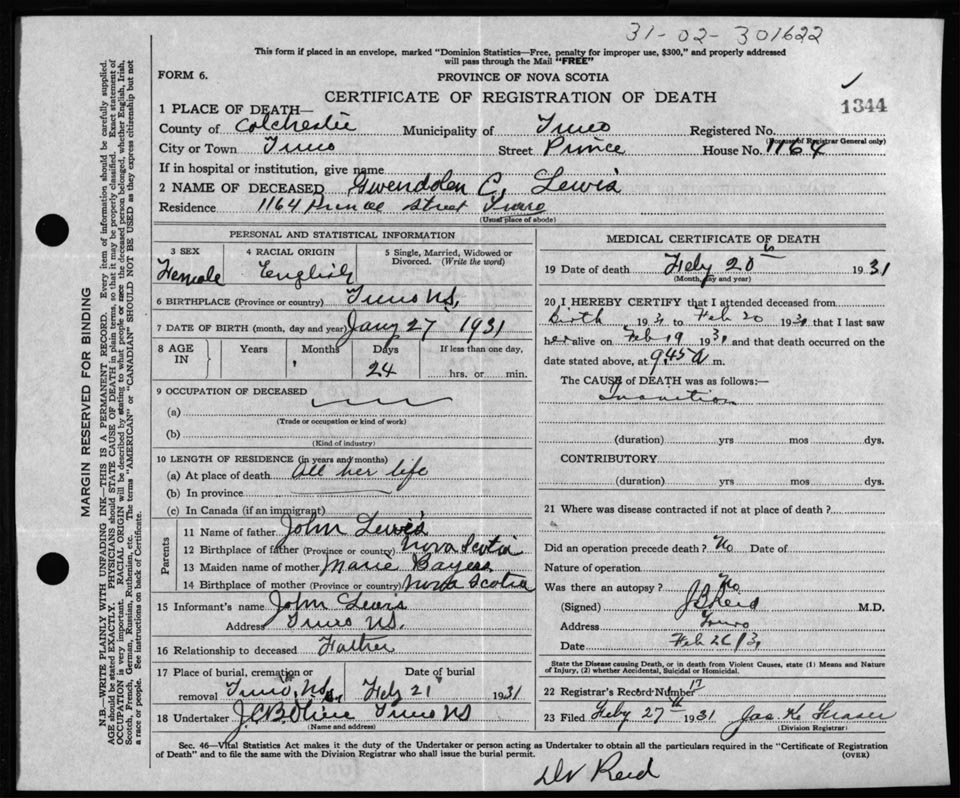 31-02-301622
This form if placed in an envelope, marked "Dominion Statistics—Free, penalty for improper use, $300," and properly addressed
will pass through the Mail "FREE"
FORM 6.
PROVINCE OF NOVA SCOTIA
CERTIFICATE OF REGISTRATION OF DEATH
1344
1 PLACE OF DEATH—
County of Colchester Municipality of Truro Registered No.
(For use of Registrar General only)
City or Town Truro Street Prince House No. 1164
If in hospital or institution, give name
2 NAME OF DECEASED Gwendolen C. Lewis
Residence 1164 Prince Street Truro
(Usual place of abode)
PERSONAL AND STATISTICAL INFORMATION
3 SEX 4 RACIAL ORIGIN 5 Single, Married, Widowed or Divorced. (Write the word)
Female English
6 BIRTHPLACE (Province or country) Truro NS.
7 DATE OF BIRTH (month, day and year) Jany 27 1931
8 AGE IN Years Months Days If less than one day,
24 hrs. or min.
9 OCCUPATION OF DECEASED
(a)
(Trade or occupation or kind of work)
(b)
(Kind of industry)
10 LENGTH OF RESIDENCE (in years and months)
(a) At place of death All her life
(b) In province
(c) In Canada (if an immigrant)
Parents
11 Name of father John Lewis
12 Birthplace of father (Province or country) Nova Scotia
13 Maiden name of mother Marie Bayers
14 Birthplace of mother (Province or country) Nova Scotia
15 Informant's name John Lewis
Address Truro NS.
16 Relationship to deceased Father
17 Place of burial, cremation or removal Truro, NS. Date of burial Feby 21 1931
18 Undertaker Truro NS
(Name and address)
MEDICAL CERTIFICATE OF DEATH
19 Date of death Feby 20th 1931
(Month, day and year)
20 I HEREBY CERTIFY that I attended deceased from
Birth 1931 to Feb 20 1931 that I last saw
her alive on Feb 19 1931 and that death occurred on the
date stated above, at 9.45 A m.
The CAUSE of DEATH was as follows:—
Inanition
(duration) yrs mos dys.
CONTRIBUTORY
(duration) yrs mos dys.
21 Where was disease contracted if not at place of death?
Did an operation precede death? No Date of
Nature of operation
Was there an autopsy? No
(Signed) Reid M.D.
Address Truro
Date Feb
State the Disease causing Death, or in death from Violent Causes, state (1) Means and Nature
of Injury, (2) whether Accidental, Suicidal or Homicidal.
22 Registrar's Record Number 17
23 Filed Feby 27th 1931 Jas K Fraser
(Division Registrar)
Sec. 46—Vital Statistics Act makes it the duty of the Undertaker or person acting as Undertaker to obtain all the particulars required in the "Certificate of Registration
of Death" and to file the same with the Division Registrar who shall issue the burial permit. (OVER)
Dr Reid
MARGIN RESERVED FOR BINDING
N.B.—WRITE PLAINLY WITH UNFADING INK—THIS IS A PERMANENT RECORD. Every item of information should be carefully supplied.
AGE should be stated EXACTLY. PHYSICIANS should STATE CAUSE OF DEATH in plain terms, so that it may be properly classified. Exact statement of
OCCUPATION is very important. RACIAL ORIGIN will be described by stating to what people or race the deceased person belonged, whether English, Irish,
Scotch, French, German, Russian, Ruthenian, etc. The terms "AMERICAN" or "CANADIAN" SHOULD NOT BE USED as they express citizenship but not
a race or people. See instructions on back of Certificate.